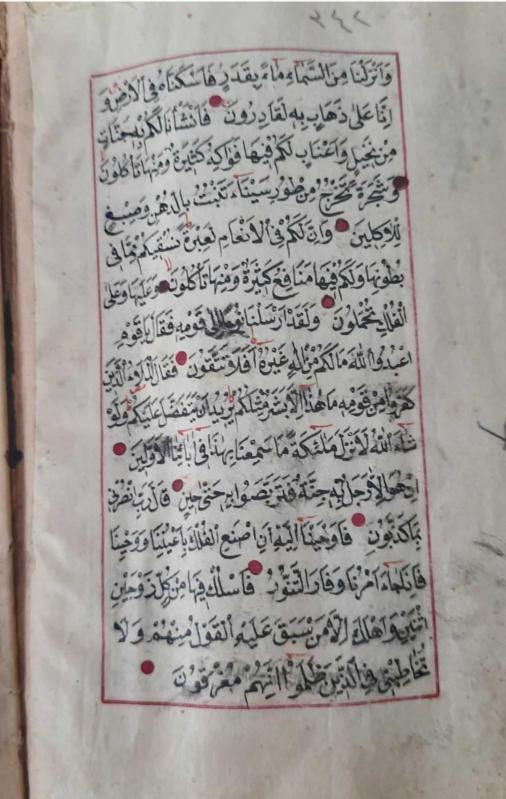 ٣٤٢
وَاَنْزَلْنَا مِنَ السَّمَاءِ مَاءً بِقَدَرٍ فَاَسْكَنَّاهُ فِى الْاَرْضِ وَ
اِنَّا عَلٰى ذَهَابٍ بِهِ لَقَادِرُونَ فَاَنْشَاْنَا لَكُمْ بِهِ جَنَّاتٍ
مِنْ نَخِيلٍ وَاَعْنَابٍ لَكُمْ فِيهَا فَوَاكِهُ كَثِيرَةٌ وَمِنْهَا تَاْكُلُونَ
وَشَجَرَةً تَخْرُجُ مِنْ طُورِ سَيْنَاءَ تَنْبُتُ بِالدُّهْنِ وَصِبْغٍ
لِلْاٰكِلِينَ وَاِنَّ لَكُمْ فِى الْاَنْعَامِ لَعِبْرَةً نُسْقِيكُمْ مِمَّا فِى
بُطُونِهَا وَلَكُمْ فِيهَا مَنَافِعُ كَثِيرَةٌ وَمِنْهَا تَاْكُلُونَ وَعَلَيْهَا وَعَلَى
الْفُلْكِ تُحْمَلُونَ وَلَقَدْ اَرْسَلْنَا نُوحًا اِلٰى قَوْمِهِ فَقَالَ يَا قَوْمِ
اعْبُدُوا اللّٰهَ مَا لَكُمْ مِنْ اِلٰهٍ غَيْرُهُ اَفَلَا تَتَّقُونَ فَقَالَ الْمَلَؤُا الَّذِينَ
كَفَرُوا مِنْ قَوْمِهِ مَا هٰذَا اِلَّا بَشَرٌ مِثْلُكُمْ يُرِيدُ اَنْ يَتَفَضَّلَ عَلَيْكُمْ وَلَوْ
شَاءَ اللّٰهُ لَاَنْزَلَ مَلٰئِكَةً مَا سَمِعْنَا بِهٰذَا فِى اٰبَائِنَا الْاَوَّلِينَ
اِنْ هُوَ اِلَّا رَجُلٌ بِهِ جِنَّةٌ فَتَرَبَّصُوا بِهِ حَتّٰى حِينٍ قَالَ رَبِّ انْصُرْنِى
بِمَا كَذَّبُونِ فَاَوْحَيْنَا اِلَيْهِ اَنِ اصْنَعِ الْفُلْكَ بِاَعْيُنِنَا وَوَحْيِنَا
فَاِذَا جَاءَ اَمْرُنَا وَفَارَ التَّنُّورُ فَاسْلُكْ فِيهَا مِنْ كُلٍّ زَوْجَيْنِ
اثْنَيْنِ وَاَهْلَكَ اِلَّا مَنْ سَبَقَ عَلَيْهِ الْقَوْلُ مِنْهُمْ وَلَا
تُخَاطِبْنِى فِى الَّذِينَ ظَلَمُوا اِنَّهُمْ مُغْرَقُونَ